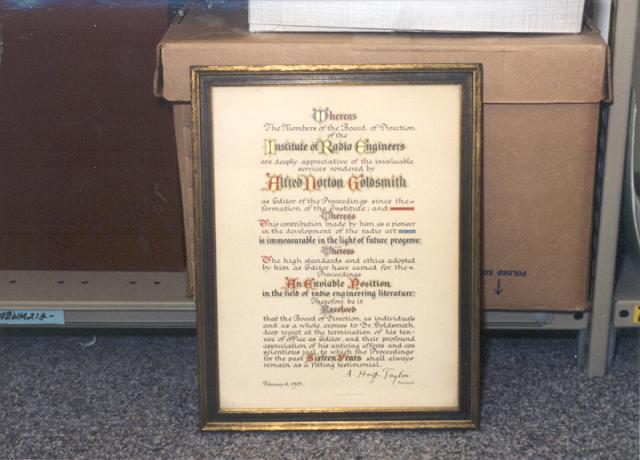 Whereas
The Members of the Board of Direction
of the
Institute of Radio Engineers
are deeply appreciative of the invaluable
services rendered by
Alfred Norton Goldsmith
as Editor of the Proceedings since the
formation of the Institute; and
Whereas
This contribution made by him as a pioneer
in the development of the radio art
is immeasurable in the light of future progress;
Whereas
The high standards and ethics adopted
by him as Editor have earned for the
Proceedings
An Enviable Position
in the field of radio engineering literature:
Therefore be it
Resolved
that the Board of Direction, as individuals
and as a whole, express to Dr. Goldsmith
deep regret at the termination of his ten-
ure of office as Editor, and their profound
appreciation of his untiring efforts and con
scientious zeal, to which the Proceedings
for the past Sixteen Years shall always
remain as a fitting testimonial.
A. Hoyt Taylor
President
February 6, 1929.
FOLDED